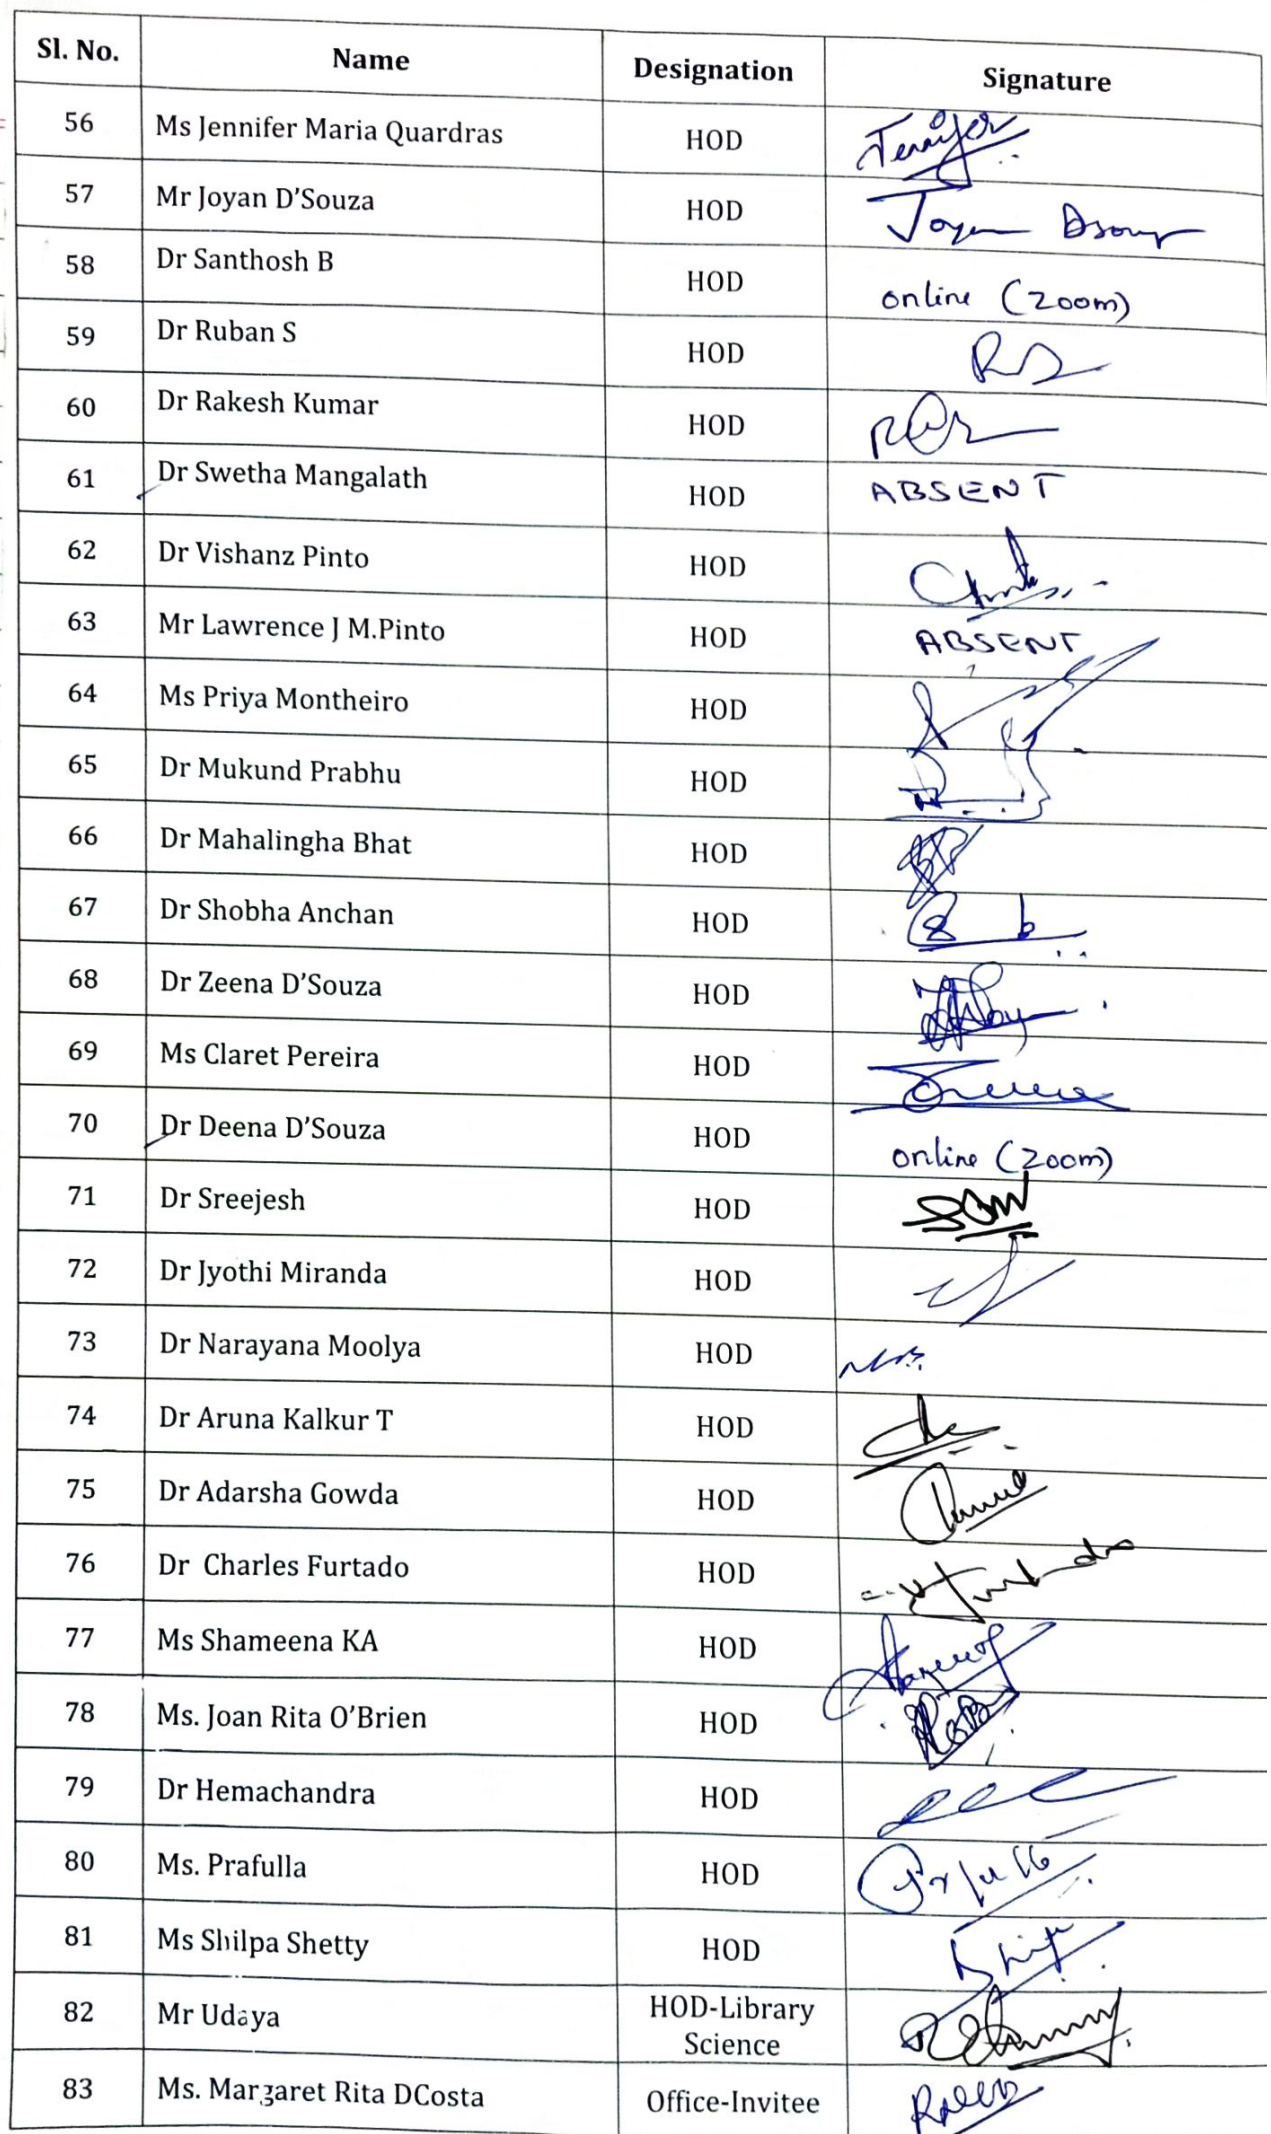 Sl. No. Name Designation Signature
56 Ms Jennifer Maria Quardras HOD Jennifer
57 Mr Joyan D'Souza HOD Joyan Dsouza
58 Dr Santhosh B HOD online (zoom)
59 Dr Ruban S HOD
60 Dr Rakesh Kumar HOD
61 Dr Swetha Mangalath HOD ABSENT
62 Dr Vishanz Pinto HOD
63 Mr Lawrence J M.Pinto HOD ABSENT
64 Ms Priya Montheiro HOD
65 Dr Mukund Prabhu HOD
66 Dr Mahalingha Bhat HOD
67 Dr Shobha Anchan HOD
68 Dr Zeena D'Souza HOD
69 Ms Claret Pereira HOD
70 Dr Deena D'Souza HOD online (zoom)
71 Dr Sreejesh HOD
72 Dr Jyothi Miranda HOD
73 Dr Narayana Moolya HOD
74 Dr Aruna Kalkur T HOD
75 Dr Adarsha Gowda HOD
76 Dr Charles Furtado HOD
77 Ms Shameena KA HOD
78 Ms. Joan Rita O'Brien HOD
79 Dr Hemachandra HOD
80 Ms. Prafulla HOD
81 Ms Shilpa Shetty HOD
82 Mr Udaya HOD-Library
Science
83 Ms. Margaret Rita DCosta Office-Invitee